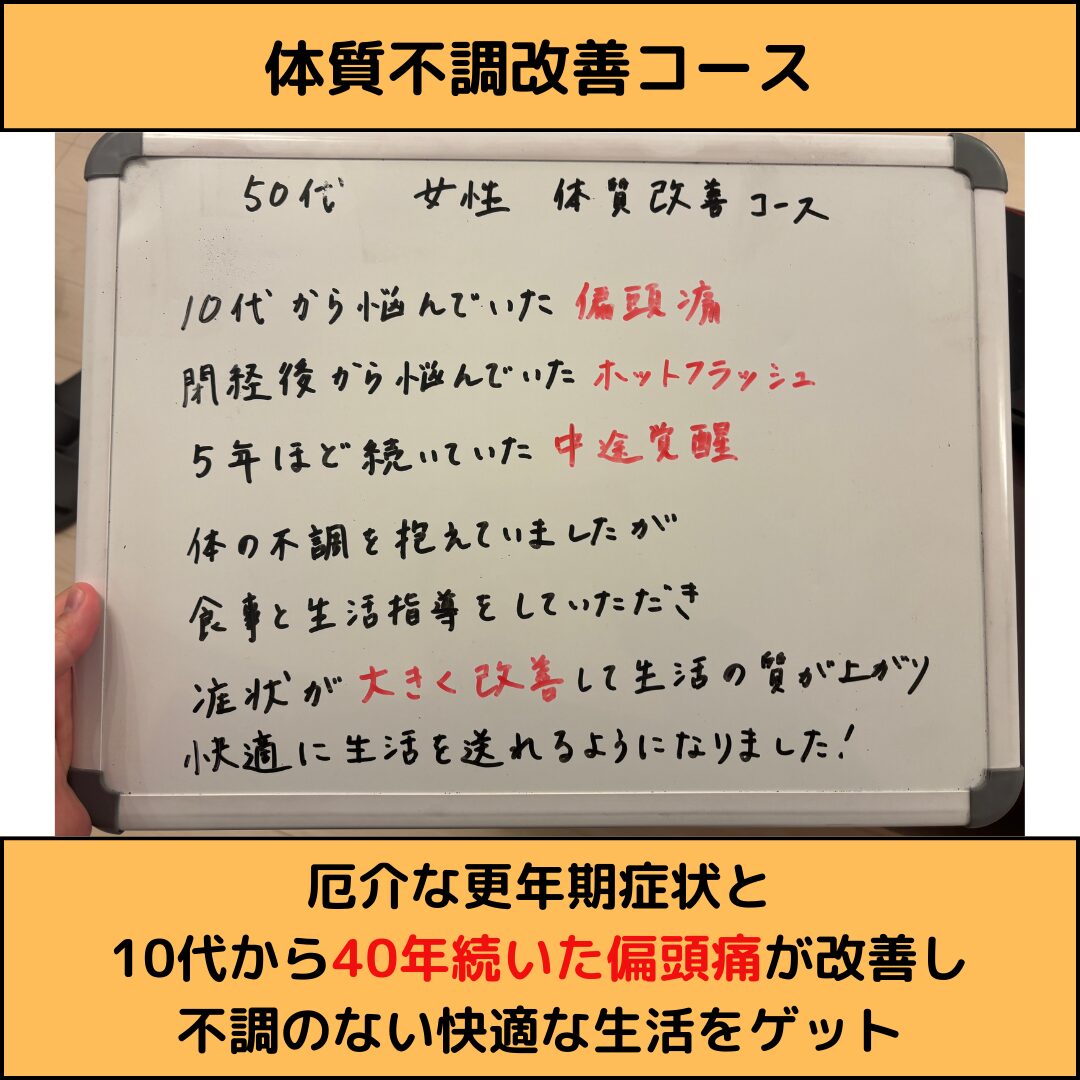 体質不調改善コース
50代 女性 体質改善コース
10代から悩んでいた偏頭痛
閉経後から悩んでいたホットフラッシュ
5年ほど続いていた中途覚醒
体の不調を抱えていましたが
食事と生活指導をしていただき
症状が大きく改善して生活の質が上がり
快適に生活を送れるようになりました!
厄介な更年期症状と
10代から40年続いた偏頭痛が改善し
不調のない快適な生活をゲット